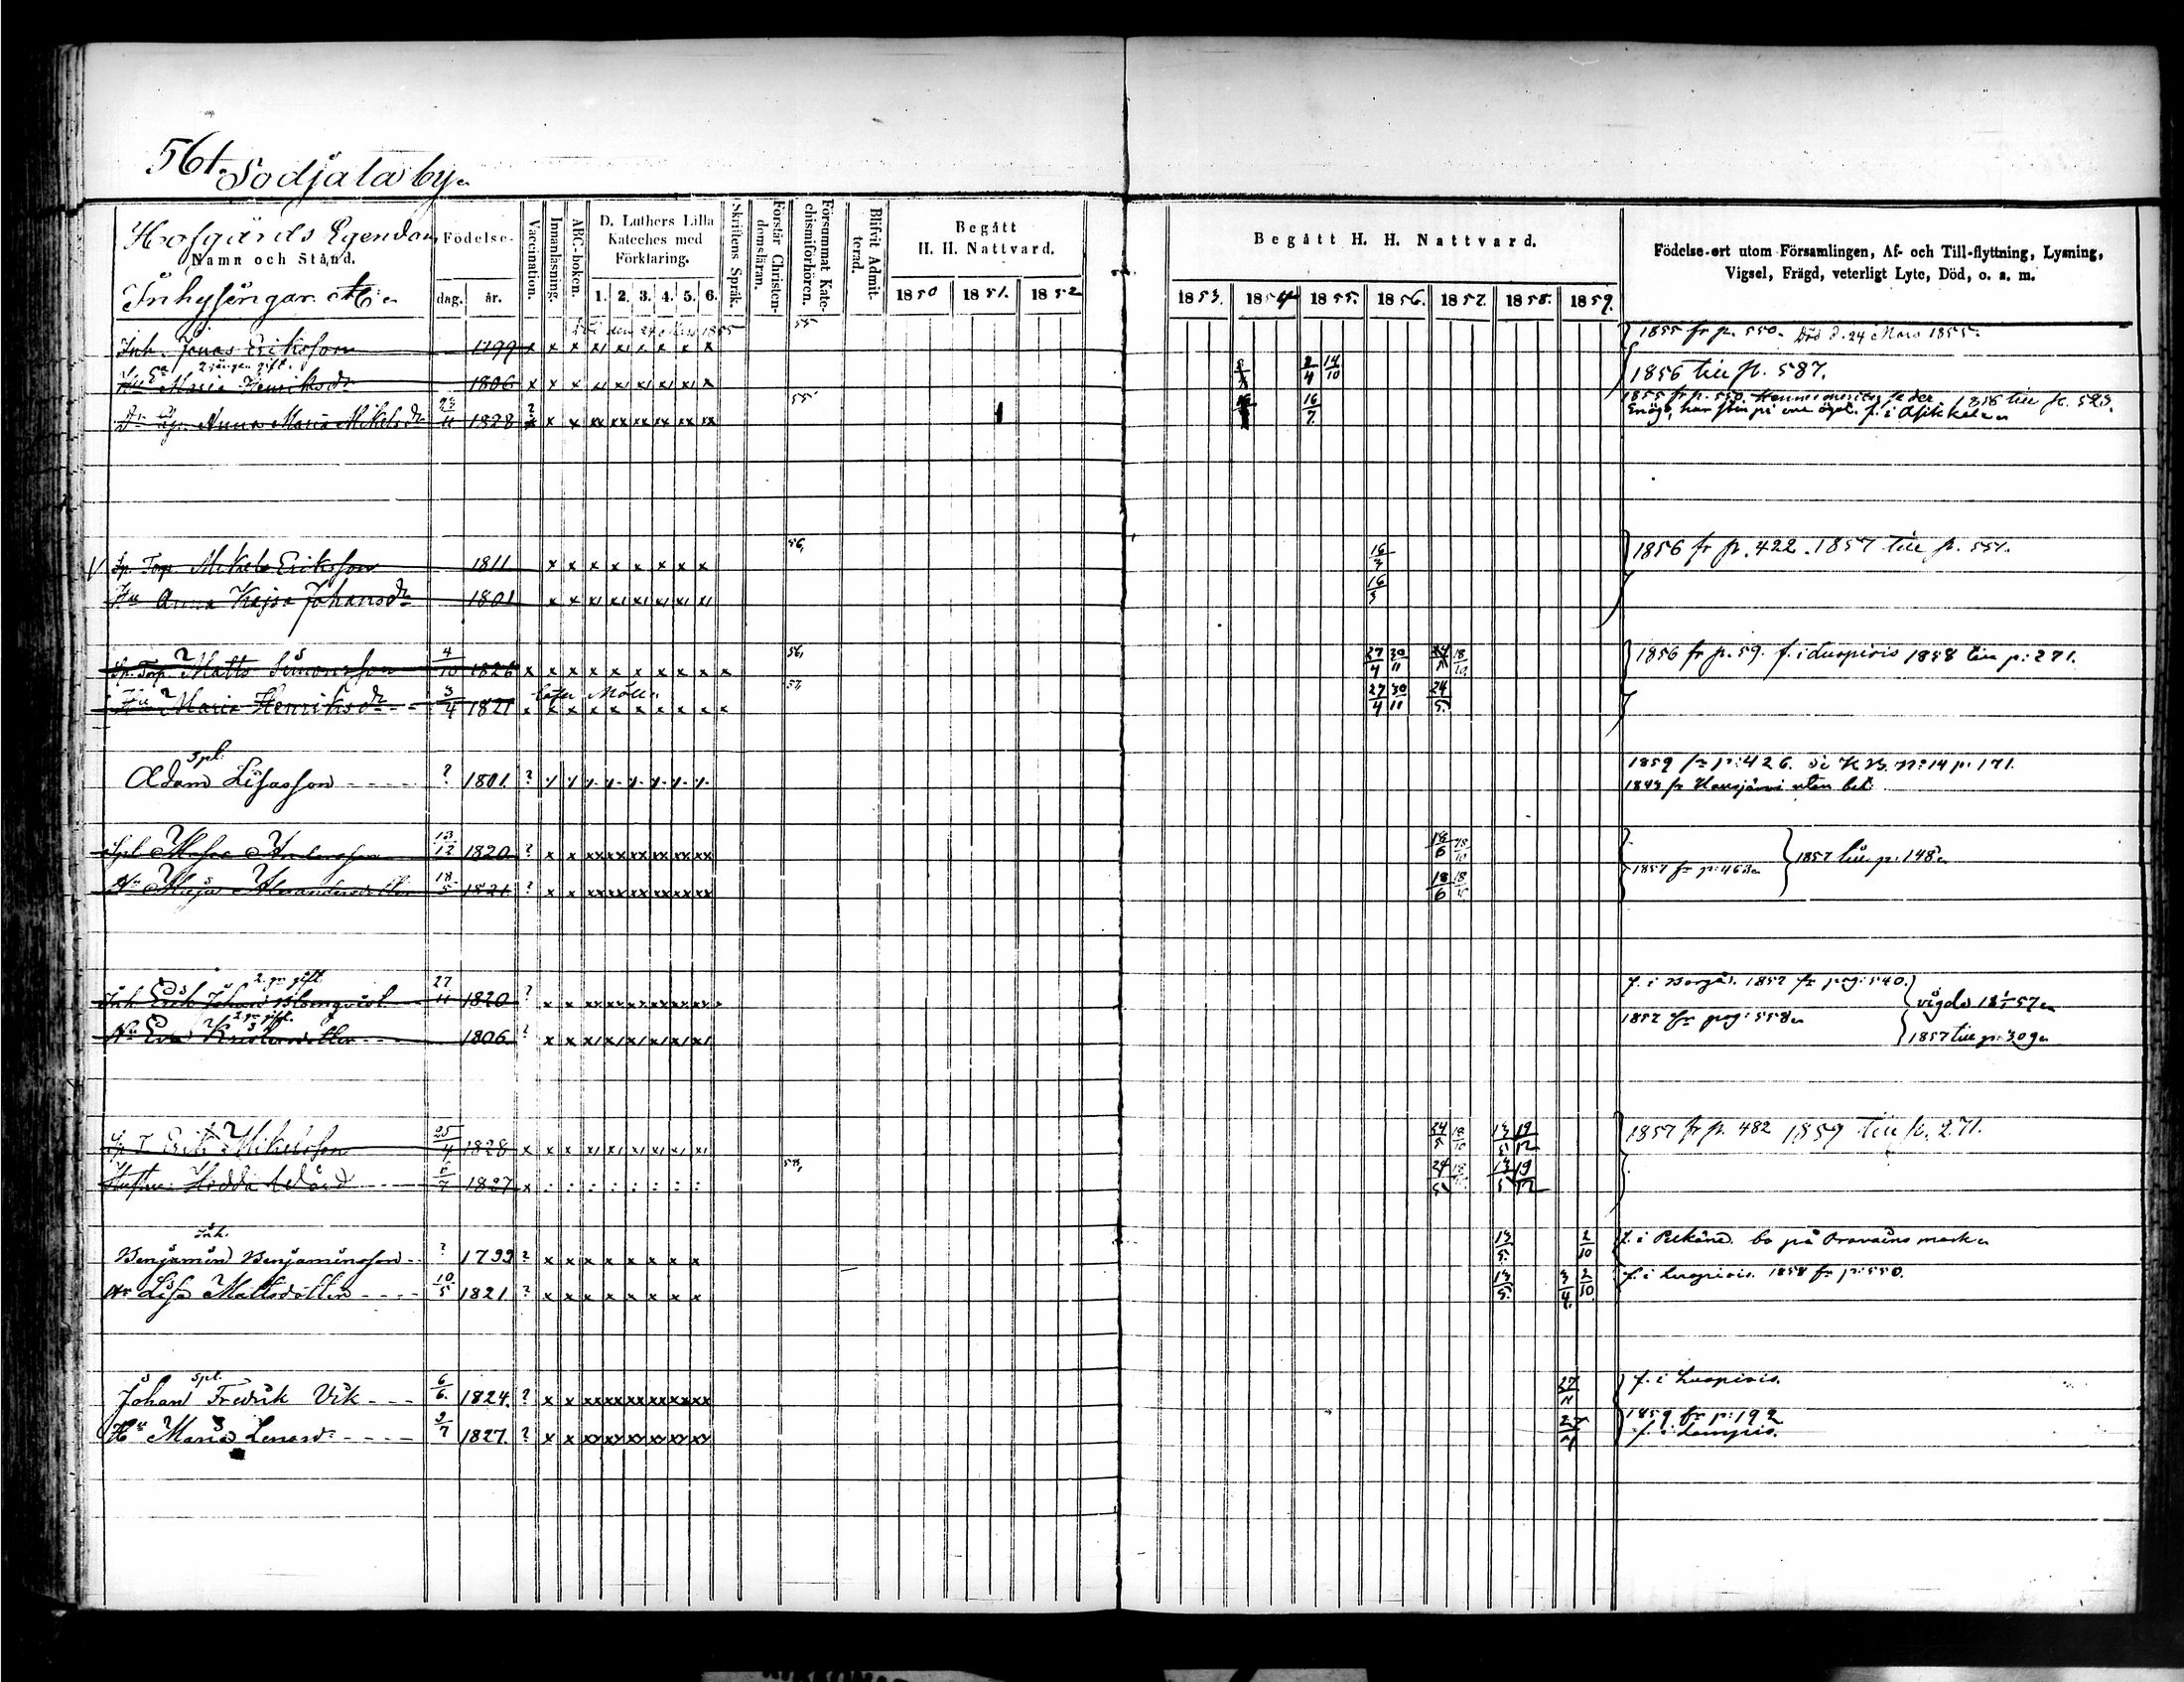 561. Sodjala by
Hofgårds Egendom
Namn och Stånd.
Inhysingar
Födelse-
dag. år.
Vaccination.
Innanläsning.
ABC-boken.
D. Luthers Lilla
Kateches med
Förklaring.
1. 2. 3. 4. 5. 6.
Skriftens Språk.
Förstår Christen-
domsläran.
Försummat Kate-
chismiförhören.
Blifvit Admit-
terad.
Begått
H. H. Nattvard.
1850 1851. 1852
Begått H. H. Nattvard.
1853. 1854 1855. 1856. 1857. 1858. 1859.
Födelse-ort utom Församlingen, Af- och Till-flyttning, Lysning,
Vigsel, Frägd, veterligt Lyte, Död, o. a. m.
Död den 24 Mars 1855 55
Inh. Jonas Eriksson 1799 x x x x/ x/ x x x x 1855 fr p. 550. Död d. 24 Mars 1855.
2 gången gift.
Maria Henriksdr 1806 x x x 2/4 14/10 1856 till p. 587.
Anna Maria Mikelsdr 1828 x x xx xx xx xx xx xx 55 16/7. 1855 fr p. 550. 1856 till p. 523.
Sp. Torp Mikel Eriksson 1811 x x x x x x x x 56, 16/3 1856 fr p. 422. 1857 till p. 551.
Hu Anna Kajsa Johansdr 1801 x x x/ x/ x/ x/ x/ x/ 16/3
Sp. Torp Matts Simonsson 4/10 1826 x x x x x x x x x x 56, 27/4 30/11 18/10 1856 fr p. 59. f. i Luopiois 1858 till p: 271.
Hu Maria Henriksdr 3/4 1821 x x x x x x x x x x 57, 27/4 30/11 24/5.
Spl.
Adam Lisasson ? 1801. ? 1859 fr p: 426. Se K B. No: 14 p: 171.
1843 fr Hausjärvi utan bet.
Spl. Andersson 13/12 1820 ? x x xx xx xx xx xx xx 18/6 18/10
Hu Maja Alexandersdotter 18/5 1821 ? x x xx xx xx xx xx xx 18/6 18/10 1857 fr p: 463 1857 till p: 148
2 gr gift
Inh. Erik Johan Blomqvist 27/11 1820 ? x x xx xx xx xx xx xx f. i Borgå. 1857 fr pag: 540. vigda 18 57
2 gr gift.
Hu Eva Kristersdotter 1806 ? x x x/ x/ x/ x/ x/ x/ 1857 fr pag: 558 1857 till p: 309
Sp. T. Erik Mikelsson 25/4 1828 x x x x/ x/ x/ x/ x/ x/ 24/5 18/10 13/5 19/12 1857 fr p. 482 1859 till p. 271.
Hustru: Hedda 1827 x : : : : : : : : 58, 24/5 18/10 13/5 19/12
Inh.
Benjamin Benjaminsson ? 1799 ? x x x x x x x x 13/5. 2/10 f. i Pelkäne. bo på Oravains mark
Hu Lisa Mattsdotter 10/5 1821. ? x x x x x x x x 13/5. 3/4 2/10. f. i Luopiois. 1858 fr p: 550.
Spl.
Johan Fredrik Vik 6/6. 1824. ? x x xx xx xx xx xx xx f. i Luopiois.
Hu Maria Lenasdr 9/7 1827. ? x x xx xx xx xx xx xx 1859 fr p: 192
f. i Lampis.